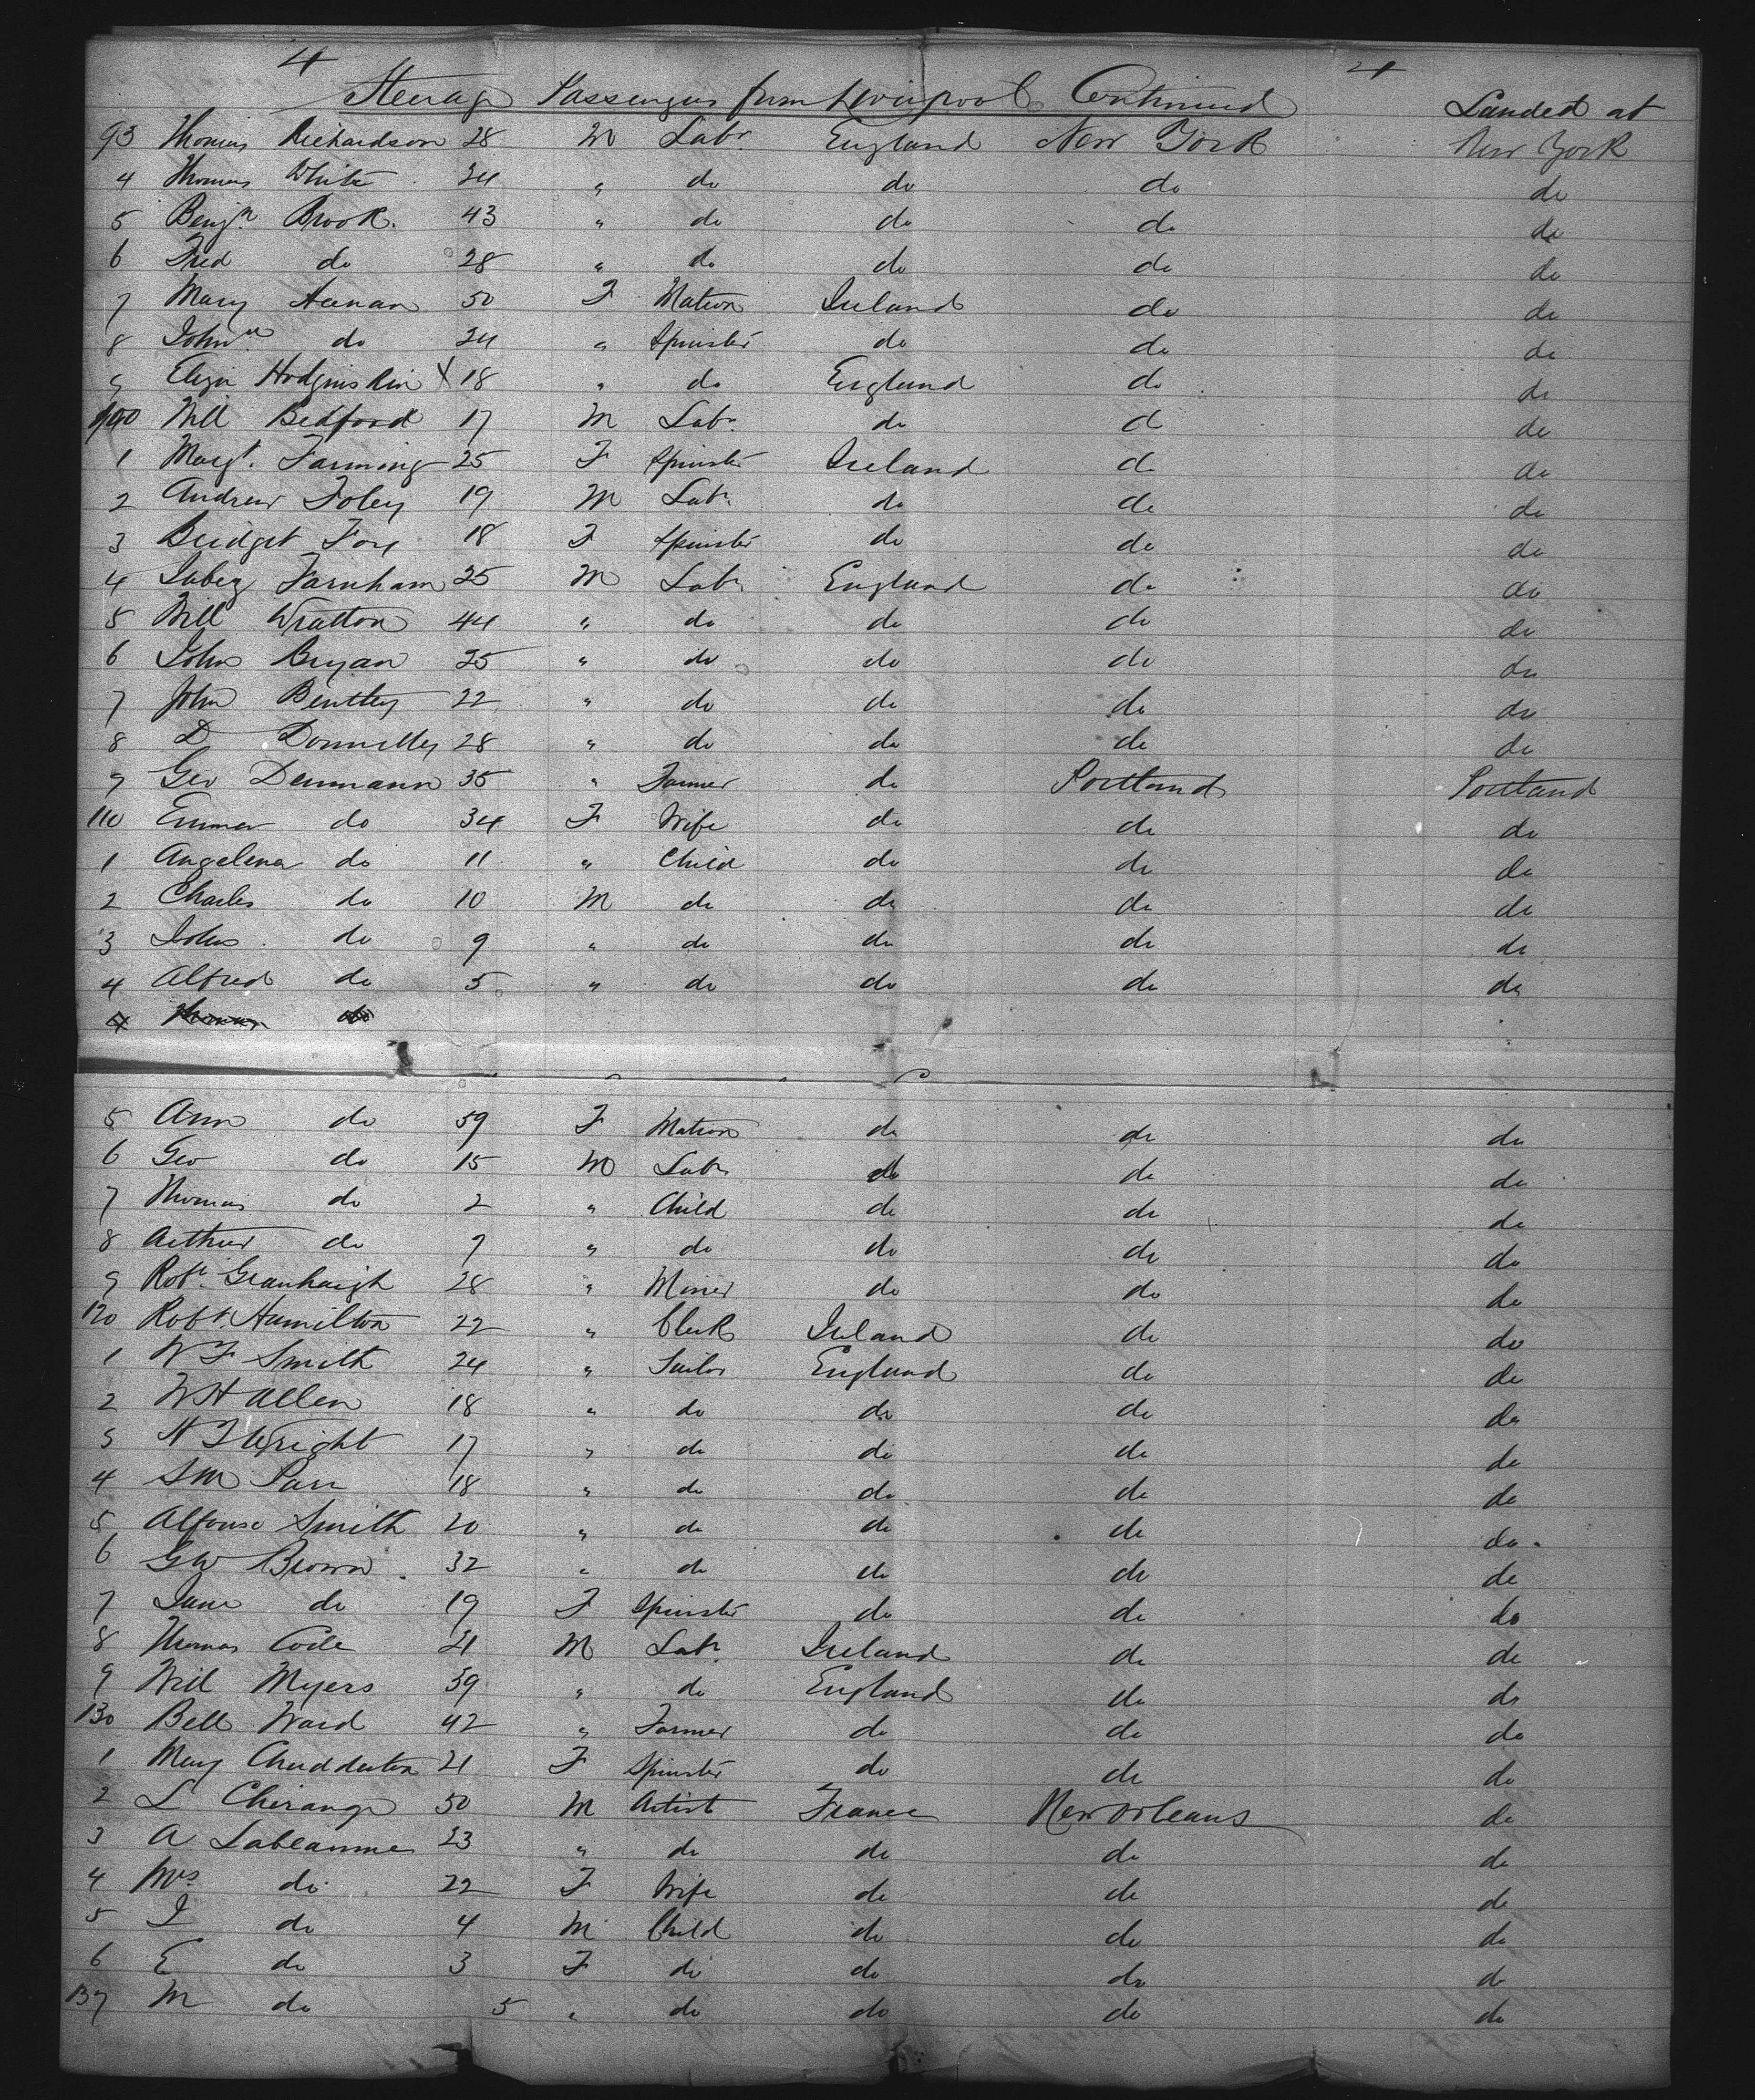 4 4
Steerage Passengers from Liverpool Continued Landed at
93 Thomas Richardson 28 M Labr England New York New York
4 Thomas White 24 " do do do do
5 Benjn Brook. 43 " do do do do
6 Fred do 28 " do do do do
7 Mary Heenan 50 F Matron Ireland do do
8 Johna do 24 " Spinster do do do
9 Eliza Hodginskin X 18 " do England do do
100 Will Bedford 17 M Labr do d do
1 Margt. Farming 25 F Spinster Ireland d do
2 Andrew Foley 19 M Labr do do do
3 Bridget Fox 18 F Spinster do do do
4 Jabez Farnham 25 M Labr England do do
5 Will Wratton 44 " do do do do
6 John Bryan 25 " do do do do
7 John Bentley 22 " do do do do
8 D Donnelly 28 " do do do do
9 Geo Denmann 35 " Farmer do Portland Portland
110 Emma do 34 F Wife do do do
1 Angelena do 11 " Child do do do
2 Charles do 10 M do do do do
3 John do 9 " do do do do
4 Alfred do 5 " do do do do
5 Ann do 59 F Matron do do do
6 Geo do 15 M Labr do do do
7 Thomas do 2 " Child do do do
8 Arthur do 7 " do do do do
9 Robt. Greenhaigh 28 " Miner do do do
120 Robt. Hamilton 22 " Clerk Ireland do do
1 W F Smith 24 " Sailor England do do
2 W H Allen 18 " do do do do
3 H T Wright 17 " do do do do
4 S M Parr 18 " do do do do
5 Alfonso Smith 20 " do do do do
6 G W Brown 32 " do do do do
7 Jane do 19 F Spinster do do do
8 Thomas Code 21 M Labr Ireland do do
9 Will Myers 39 " do England do do
130 Bell Ward 42 " Farmer do do do
1 Mary Chudderton 21 F Spinster do do do
2 L Cherange 50 M Artist France New Orleans do
3 A Lableamme 23 " do do do do
4 Mrs do 22 F Wife do do do
5 J do 4 M Child do do do
6 E do 3 F do do do do
137 M do 5 " do do do do